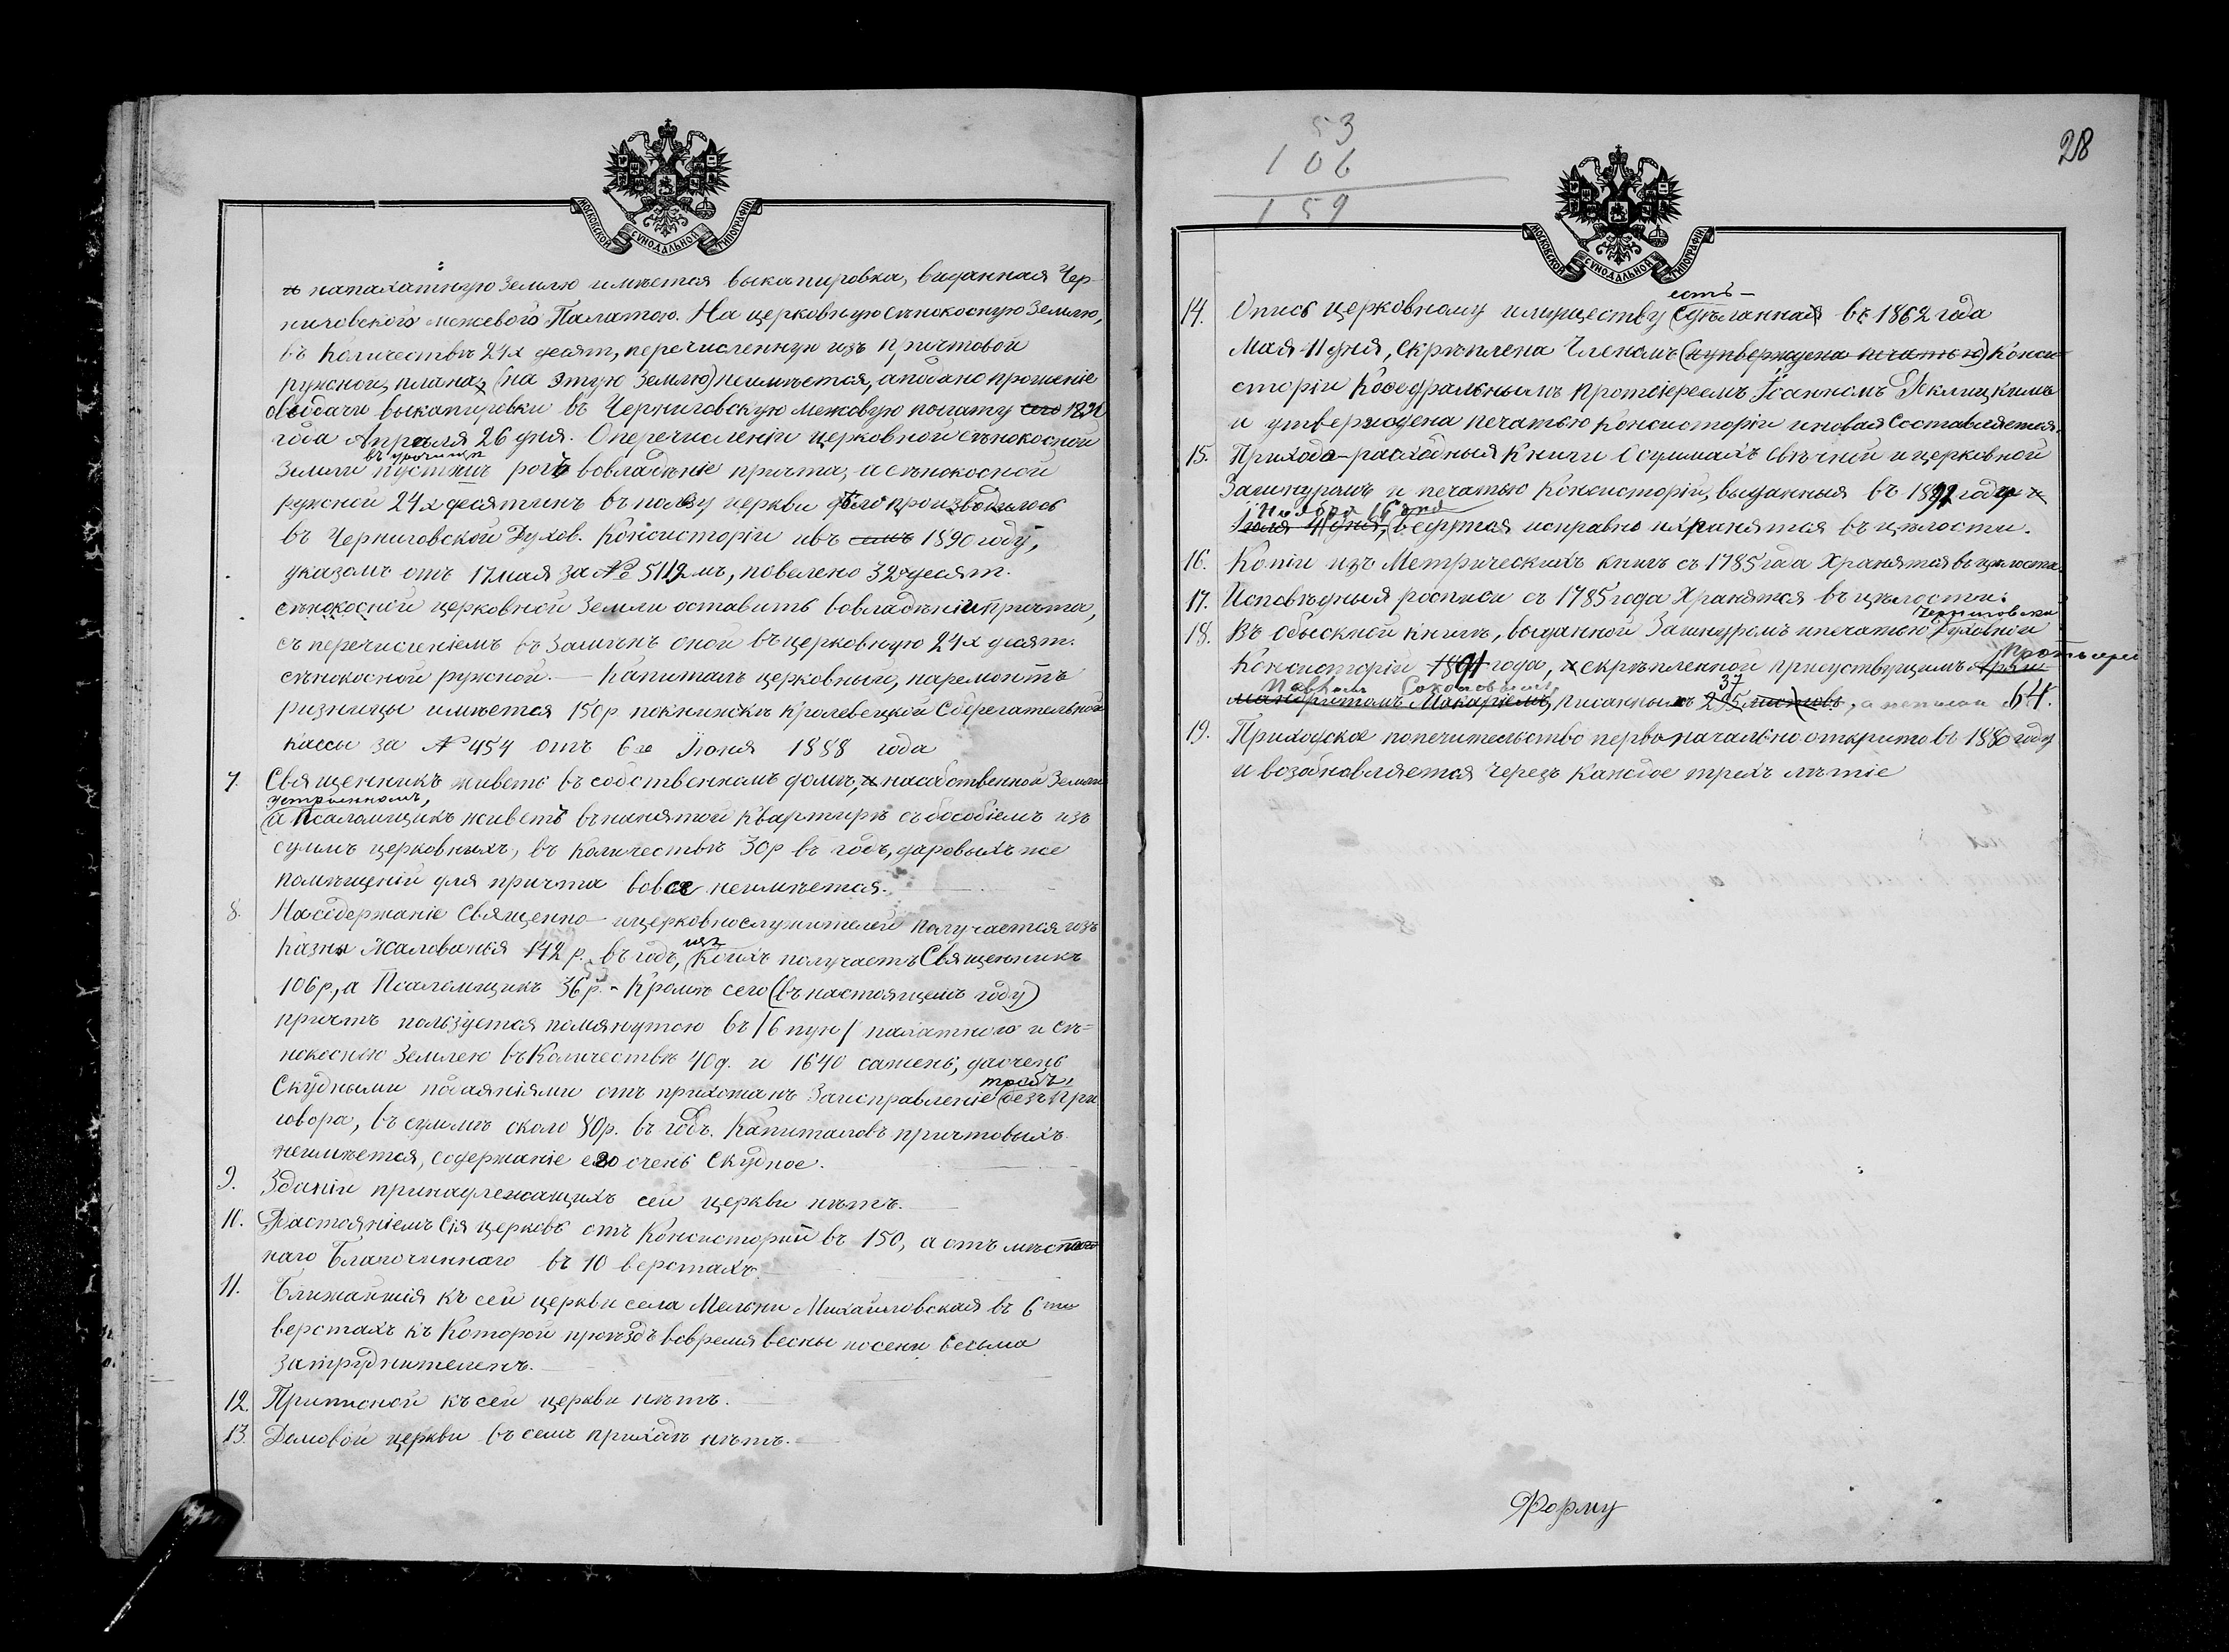 МОСКОВСКОЙ СУНОДАЛЬНОЙ ТИПОГРАФІИ
и на пахатную землю имѣется выкапировка, выданная Чер-
ниговского межевого Палатою. На церковную сѣнокосную землю,
въ количествѣ 24х десят, перечисленную изъ причтовой
ружной, плана (на этую землю) неимѣется, а подано прошеніе
о выдачи выкапировки въ Черниговскую межовую полату сего 1891
года Апрѣля 26 дня. О перечисленіи церковной сѣнокосной
въ урочищѣ
земли пустынь рогъ вовладѣніе причта, и сѣнокосной
ружной 24х десятинъ въ ползу церкви дѣло производилось
въ Черниговской Духов. Консисторіи и въ семъ 1890 году,
указомъ отъ 17 мая за № 5112мъ, повелено 32 десят.
сѣнокосной церковной земли оставить вовладѣніи причта,
съ перечисленіемъ въ замѣнъ оной въ церковную 24х десят.
сѣнокосной ружной. — Капиталъ церковный, на ремонтъ
ризницы имѣется 150р по книжкѣ Кролевецкой Сберегательной
кассы за № 454 отъ 6го Іюня 1888 года
7. Священникъ живетъ въ собственномъ домѣ, и на собственной земли
устроенномъ,
а Псаломщикъ живетъ въ нанятой квартирѣ съ пособіемъ изъ
суммъ церковныхъ, въ количествѣ 30р въ годъ, даровыхъ же
помѣщеній для причта вовсе неимѣется.
8. На содержаніе Священно- и церковнослужителей получается изъ
казны жалованья 142 р. въ годъ, изъ коихъ получаетъ Священникъ
106р, а Псаломщикъ 36р. - Кромѣ сего (въ настоящемъ году)
причтъ пользуется помянутою въ /6 пун/ пахатного и сѣ=
нокосною землею въ количествѣ 40д. и 1640 сажень, да очень
скудными подаяніями отъ прихожанъ за исправленіе требъ, безъ при
говора, въ суммѣ около 80р. въ годъ. Капиталовъ причтовыхъ
неимѣется, содержаніе его очень скудное.
9. Зданій принадлежащихъ сей церкви нѣтъ.
10. Разстояніемъ сія церковь отъ Консисторіи въ 150, а отъ мѣст
наго Благочиннаго въ 10 верстахъ.
11. Ближайшія къ сей церкви села Мельни Михайловская въ 6ти
верстахъ къ которой проѣздъ вовремя весны и осени весьма
затруднителенъ.
12. Приписной къ сей церкви нѣтъ.
13. Домовой церкви въ семъ приходѣ нѣтъ.
53
106
159
28
МОСКОВСКОЙ СУНОДАЛЬНОЙ ТИПОГРАФІИ
есть
14. Опись церковному имуществу сдѣланная въ 1862 года
Мая 11 дня, скрѣплена Членомъ (и утверждена печатью) Конси
сторіи Кафедральнымъ Протоіереемъ Іоанномъ
и утверждена печатью Консисторіи и новая составляется.
15. Приходо-расходныя книги о суммахъ свѣчной и церковной
за шнуромъ и печатью Консисторіи, выданныя въ 1892 году
Ноября 16 дня
Іюля 4 дня, ведутся исправно и хранятся въ цѣлости.
16. Копіи изъ Метрическихъ книгъ съ 1785 года хранятся въ цѣлости.
17. Исповѣдныя росписи съ 1785 года хранятся въ цѣлости.
Черниговской
18. Въ обыскной книгѣ, выданной за шнуромъ и печатью Духовной
Протоіере
Консисторіи 1891 года, и скрѣпленной присутствующимъ Архи
Павломъ Соколовымъ 37
мандритомъ Макаріемъ, писанныхъ 295 листовъ, а неписан 64.
19. Приходское попечительство первоначально открыто въ 1880 году
и возобновляется черезъ каждое трехъ лѣтіе
Форму